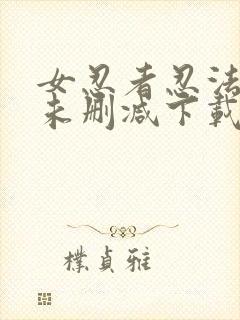 女忍者忍法
未删减下载
樸貞雅